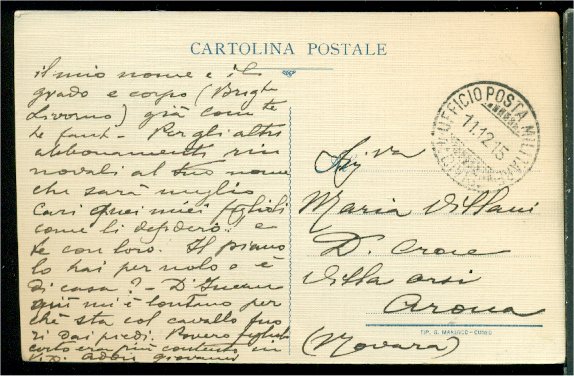 CARTOLINA POSTALE
il mio nome e il
grado e corpo (Brigta
Livorno) già com te
Per gli altri
abbonamenti rin
novali al tuo nome
che sarà meglio
Cari quei miei figlioli
come li desidero e
te con loro. Il piano
lo hai per nolo o è
di casa? -
più mi è lontano per
chè sta col cavallo fuo
ri dai piedi. Povero figliolo
certo era più contento in
Giovanni
UFFICIO POSTA MILITARE
11.12.15
Sig.va
Maria Villani
D. Croce
Villa Orsi
Arona
(Novara)
TIP. G. MARENCO - CUNEO